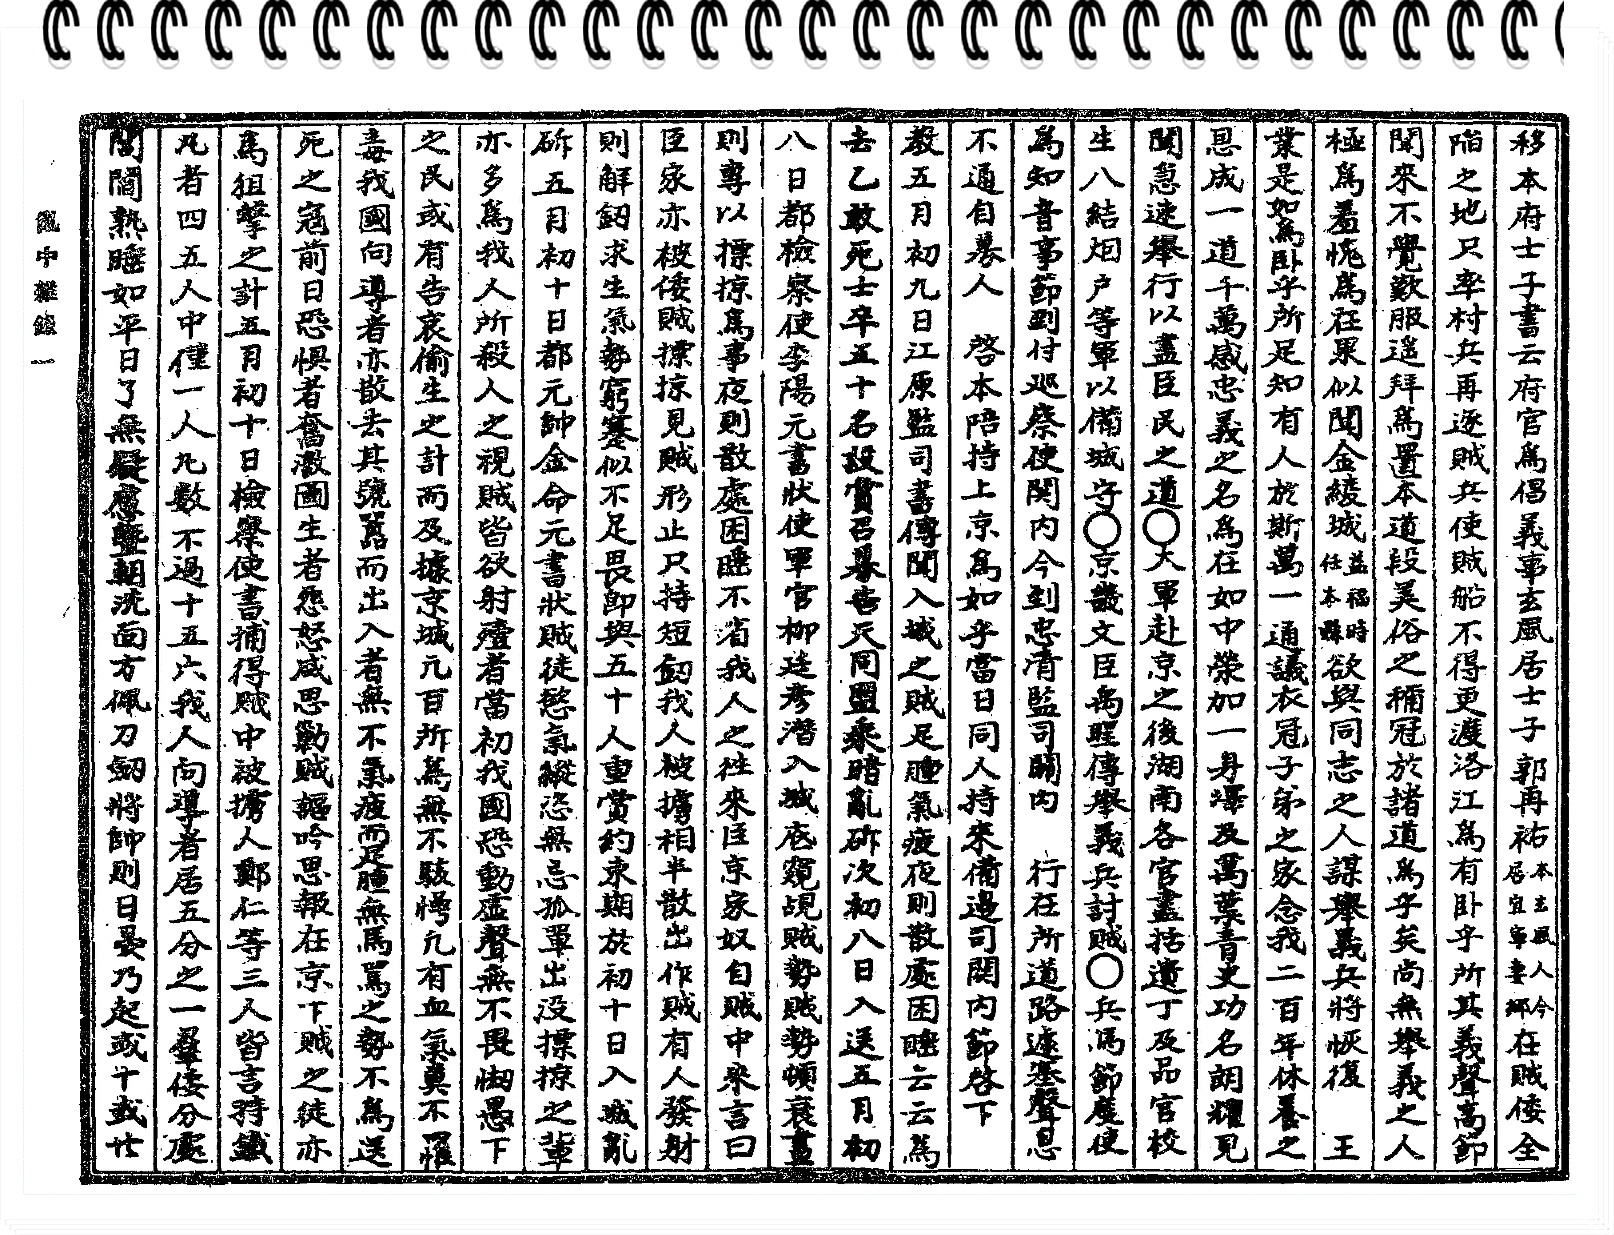 移本府士子書云府官爲倡義事玄風居士子郭再祐本玄風人今居宜寧妻鄉在賊倭全
陷之地只率村兵再逐賊兵使賊船不得更渡洛江爲有卧乎所其義聲高節
聞來不覺歎服遥拜爲置本道段美俗之稱冠於諸道爲乎矣尚無舉義之人
極爲羞愧爲在果似聞金綾城益福時任本縣欲與同志之人謀舉義兵將恢復 王
業是如爲卧乎所足知有人於斯萬一通議衣冠子弟之家念我二百年休養之
恩成一道千萬感忠義之名爲在如中榮加一身澤及萬葉青史功名朗耀見
聞急速舉行以盡臣民之道○大軍赴京之後湖南各官盡括遺丁及品官校
生八結烟户等軍以備城守○京畿文臣禹性傳舉義兵討賊○兵馮節度使
爲知音事節到付巡察使関内今到忠清監司關内 行在所道路遽塞聲息
不通自募人 啓本陪持上京爲如乎當日同人持來備邊司関内節啓下
教五月初九日江原監司書傳聞入城之賊足腫氣疲夜則散處困睡云云爲
去乙敢死士卒五十名設賞召募告天同盟乘暗亂斫次初八日入送五月初
八日都檢察使李陽元書狀使軍官柳廷彥潛入城底窺覘賊勢賊勢頓衰晝
則專以摽掠爲事夜則散處困睡不省我人之徃來臣京家奴自賊中來言曰
臣家亦被倭賊摽掠見賊形止只持短劒我人被擄相半散出作賊有人發射
則解劒求生氣勢窮蹇似不足畏卽與五十人重賞約束期於初十日入城亂
斫五月初十日都元帥金命元書狀賊徒愁氣縱恣無忌孤單出没摽掠之輩
亦多爲我人所殺人之視賊皆欲射殪者當初我國恐動虚聲無不畏㥘愚下
之民或有告哀偷生之計而及據京城元百所爲無不駭愕凢有血氣莫不罹
毒我國向導者亦散去其號噐而出入者無不氣疲而足腫無馬駕之勢不爲送
死之寇前日恐惧者奮激國生者怨怒咸思勦賊謳吟思報在京下賊之徒亦
爲狙擊之計五月初十日檢察使書捕得賊中被擄人鄭仁等三人皆言持鐵
丸者四五人中僅一人丸數不過十五六我人向導者居五分之一羣倭分處
閭閻熟睡如平日了無疑慮曁朝洗面方佩刀劒將帥則日晏乃起或十或廿
亂中雜錄一